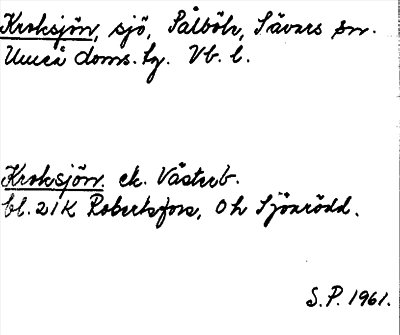 Kroksjön, sjö, Pålböle, Sävars sn.
Umeå doms. tg. Vb. l.
Kroksjön. ek. Västerb.
bl. 21K Robertsfors, 0h Sjöarödd.
S.P. 1961.